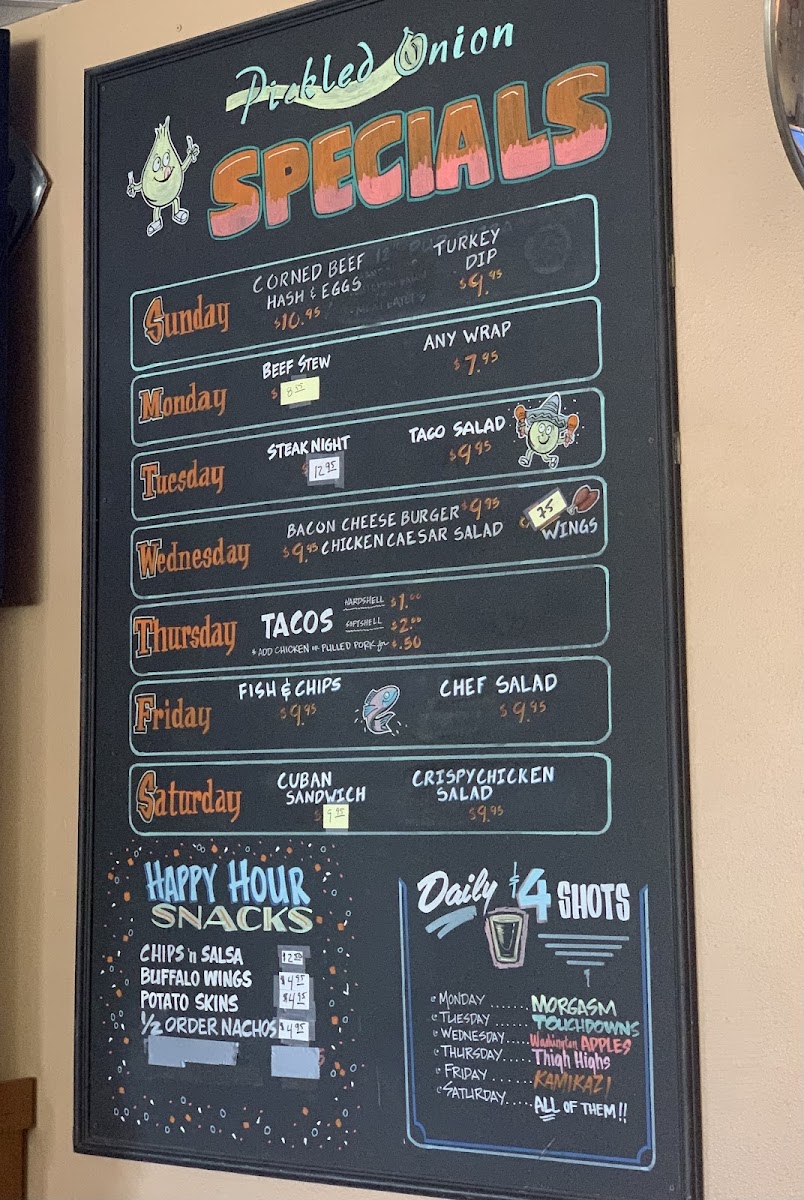 Pickled Onion
SPECIALS
Sunday
CORNED BEEF
HASH & EGGS
$10.95
TURKEY
DIP
$9.95
Monday
BEEF STEW
$
ANY WRAP
$7.95
Tuesday
STEAK NIGHT
12.95
TACO SALAD
$9.95
Wednesday
BACON CHEESE BURGER $9.95
$9.95 CHICKEN CAESAR SALAD
75
WINGS
Thursday
TACOS
HARDSHELL $1.00
SOFTSHELL $2.00
* ADD CHICKEN or PULLED PORK for $.50
Friday
FISH & CHIPS
$9.95
CHEF SALAD
$9.95
Saturday
CUBAN
SANDWICH
$9.95
CRISPY CHICKEN
SALAD
$9.95
HAPPY HOUR
SNACKS
CHIPS 'n SALSA
BUFFALO WINGS $4.95
POTATO SKINS $4.95
1/2 ORDER NACHOS $4.95
Daily $4 SHOTS
MONDAY ....... MORGASM
TUESDAY ...... TOUCHDOWNS
WEDNESDAY.... Washington APPLES
THURSDAY..... Thigh Highs
FRIDAY ....... KAMIKAZI
SATURDAY..... ALL OF THEM!!